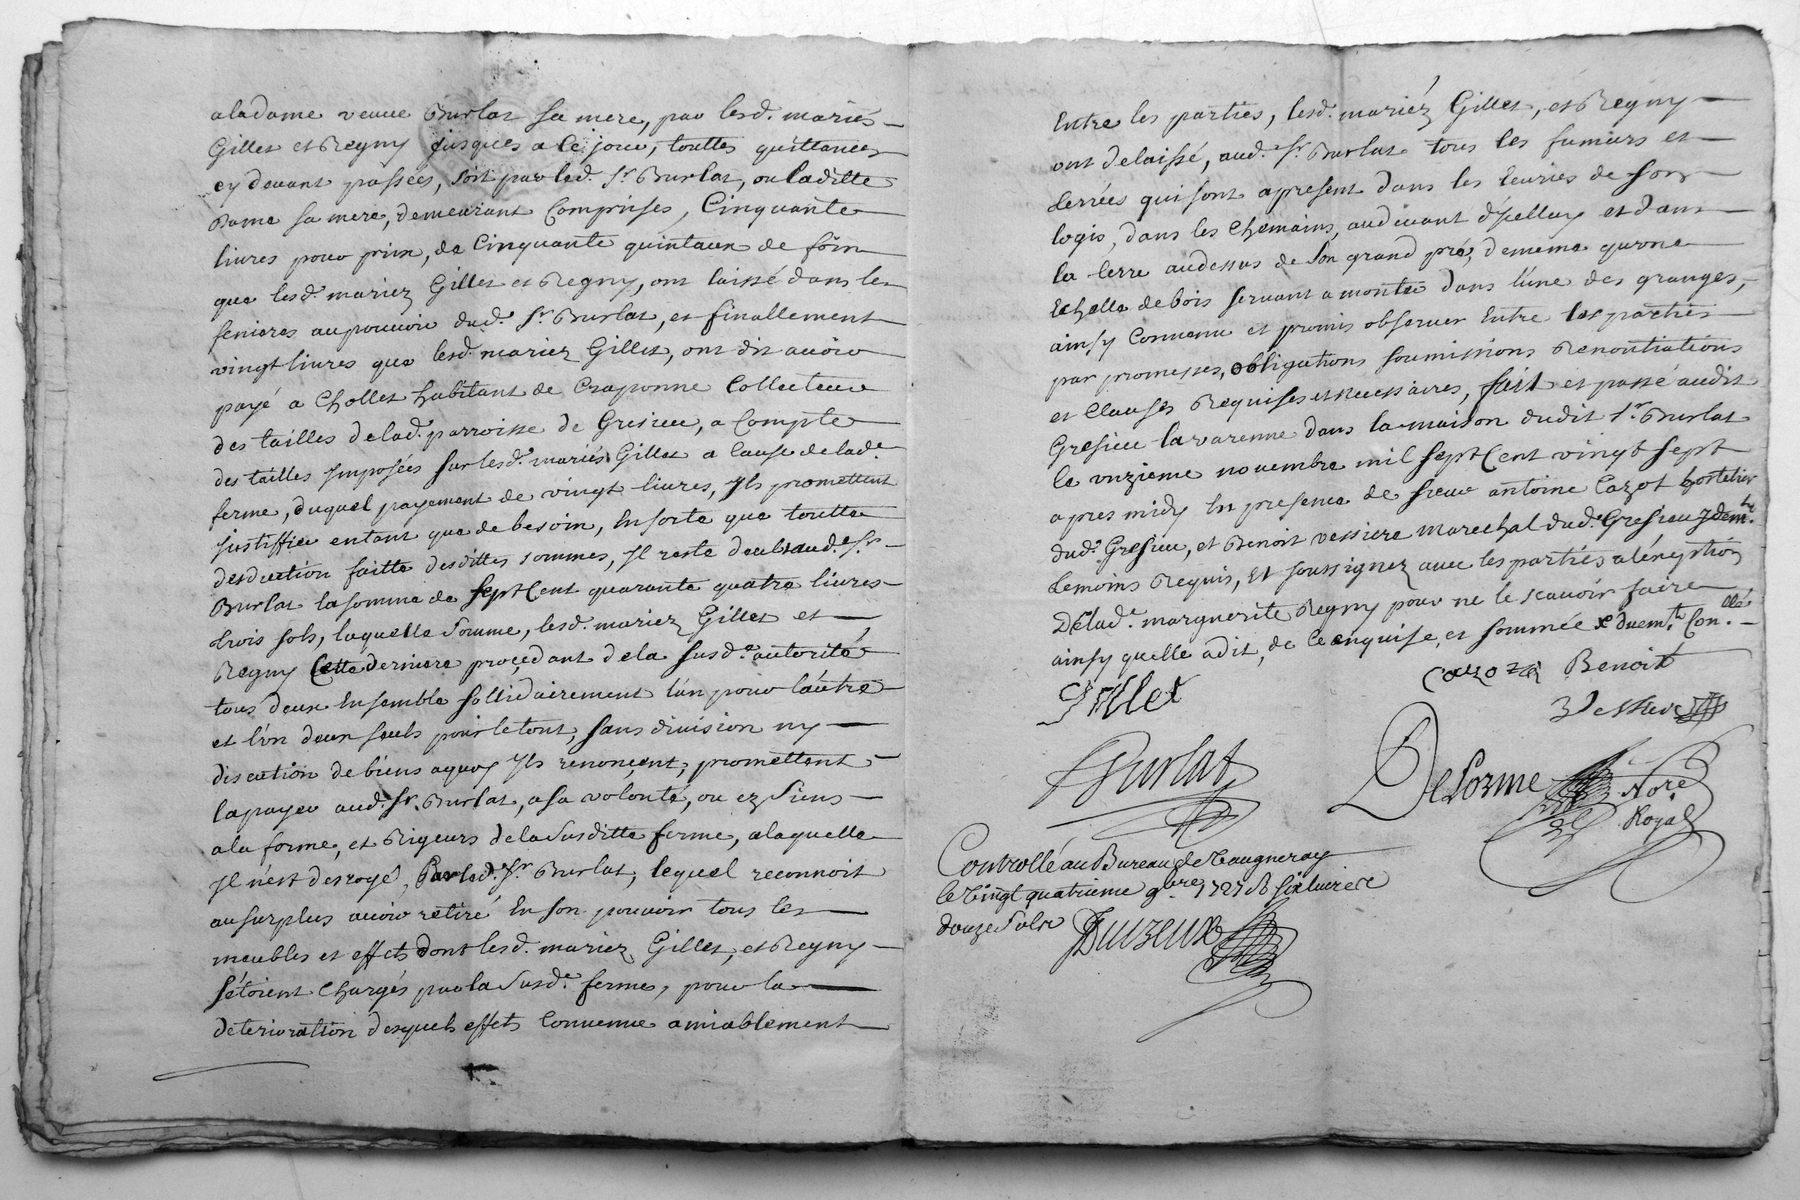 aladame veuue Burlat sa mere, par lesd. mariés
Gillet et Regny jusques a ce jour, touttes quittances
cy deuant passées, soit par led. Sr. Burlat, ou laditte
Dame sa mere, demeurant Comprises, Cinquante
liures pour prix, de Cinquante quintaux de foin
que lesd. mariez Gillet et Regny, ont laissé dans les
fenieres aupouuoir dud. Sr. Burlat, et finallement
vingt liures que lesd. mariez Gillet, ont dit auoir
payé a Chollet habitant de Craponne Collecteur
des tailles delad. parroisse de Gresieu, a Compte
des tailles Imposées sur lesd. mariés Gillet a Cause delade.
ferme, duquel payement de vingt liures, Ils promettent
justiffier entant que de besoin, Ensorte que toutte
desduction faitte desdittes sommes, Il reste deub aud. Sr.
Burlat la somme de sept Cent quarante quatre liures
trois sols, laquelle somme, lesd. mariez Gillet et
Regny Cette derniere proçedant dela susd.e autorité
tous deux Ensemble sollidairement l'un pour l'autre
et l'un deux seuls pour le tout, sans diuision ny
discution de biens aquoy Ils renonçent, promettent
la payer aud. Sr. Burlat, a sa volonté, ou ez siens
ala forme, et Rigeurs dela susditte ferme, alaquelle
Il n'est desrogé, Par led. Sr. Burlat, lequel reconnoit
au surplus auoir retiré En son pouuoir tous les
meubles et effets dont lesd. mariez Gillet, et Regny
s'étoient Chargés par la susd.e ferme, pour la
deterioration desquels effets Conuenue amiablement
Entre les parties, lesd. mariéz Gillet, et Regny
ont delaissé, aud. Sr. Burlat tous les fumiers et
terrées qui sont apresent dans les Ecuries de son
logis, dans les Chemins, audeuant d'icelluy et dans
la terre audessus de son grand pré, dememe qu'une
Echelle de bois seruant a monter dans l'une des granges,
ainsy Conuenu et promis obseruer Entre les parties
par promesses, obligations soumissions Renontiations
et Clauses Requises et necessaires, fait et passé audit
Gresieu lavarenne dans la maison dudit Sr. Burlat
le vnzieme nouembre mil sept Cent vingt sept
apres midy En presence de sieur antoine Cazot hostelier
dud. Gresieu, et Benoit vessiere marechal dud. Gresieu y demt.
temoins Requis, Et soussignez auec les parties aléxeption
Délad.e marguerite Regny pour ne le scauoir faire
ainsy quelle adit, de ce enquise, et sommée
Gillet
Cazot Benoit
Burlat
Delorme Nore
Royal
Controllé au Bureau de Vaugneray
le Vingt quatrieme 9bre 1727
douze Sols